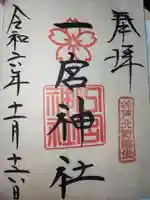 奉拝
一宮神社
令和六年十一月十六日